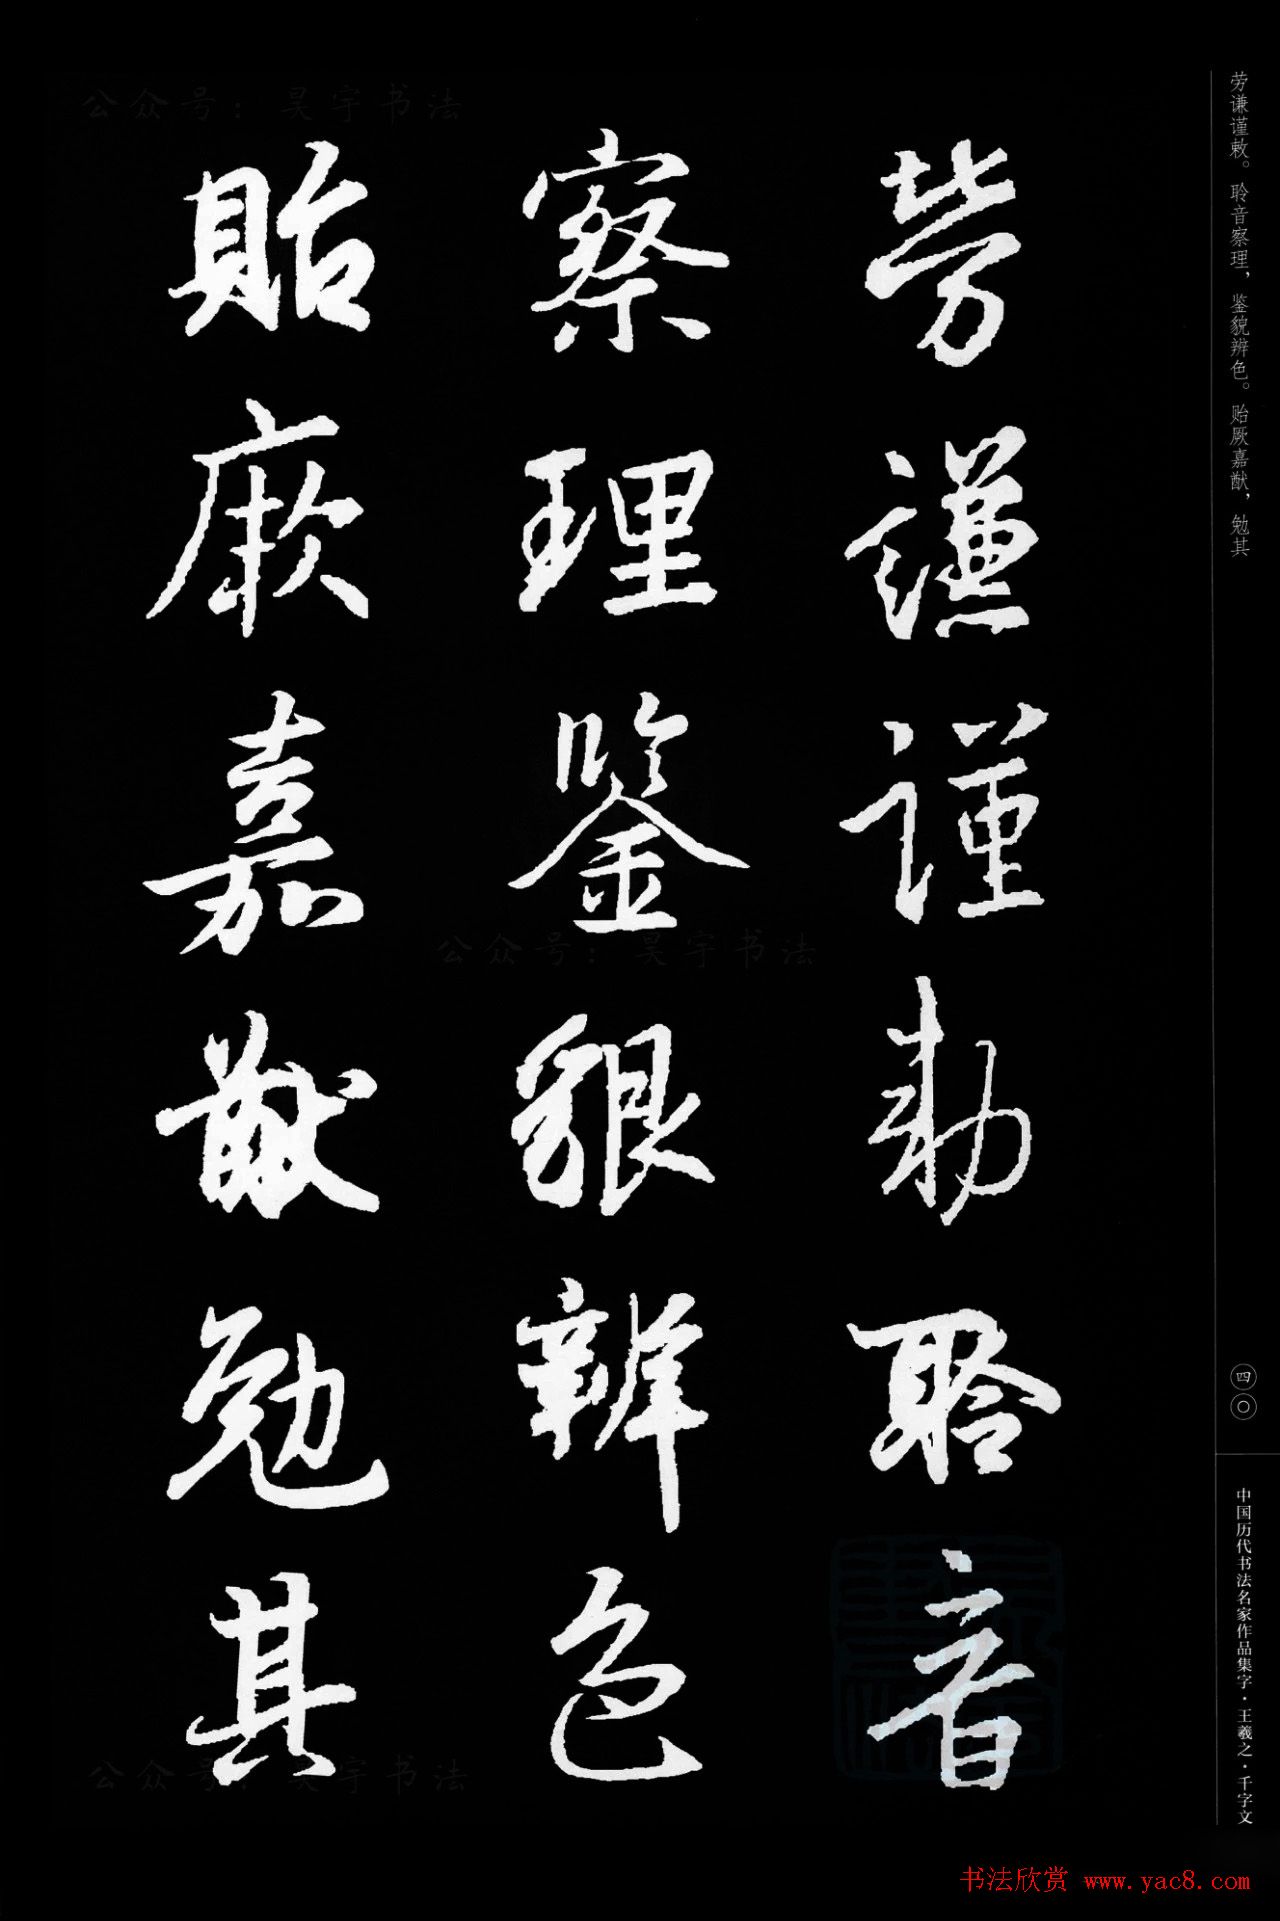 劳谦谨敕。聆音察理，鉴貌辨色。贻厥嘉猷，勉其
勞謙謹勅聆音
察理鑒貌辨色
貽厥嘉猷勉其
四〇
中国历代书法名家作品集字·王羲之·千字文
公众号：昊宇书法
公众号：昊宇书法
公众号：昊宇书法
书法欣赏 www.yac8.com